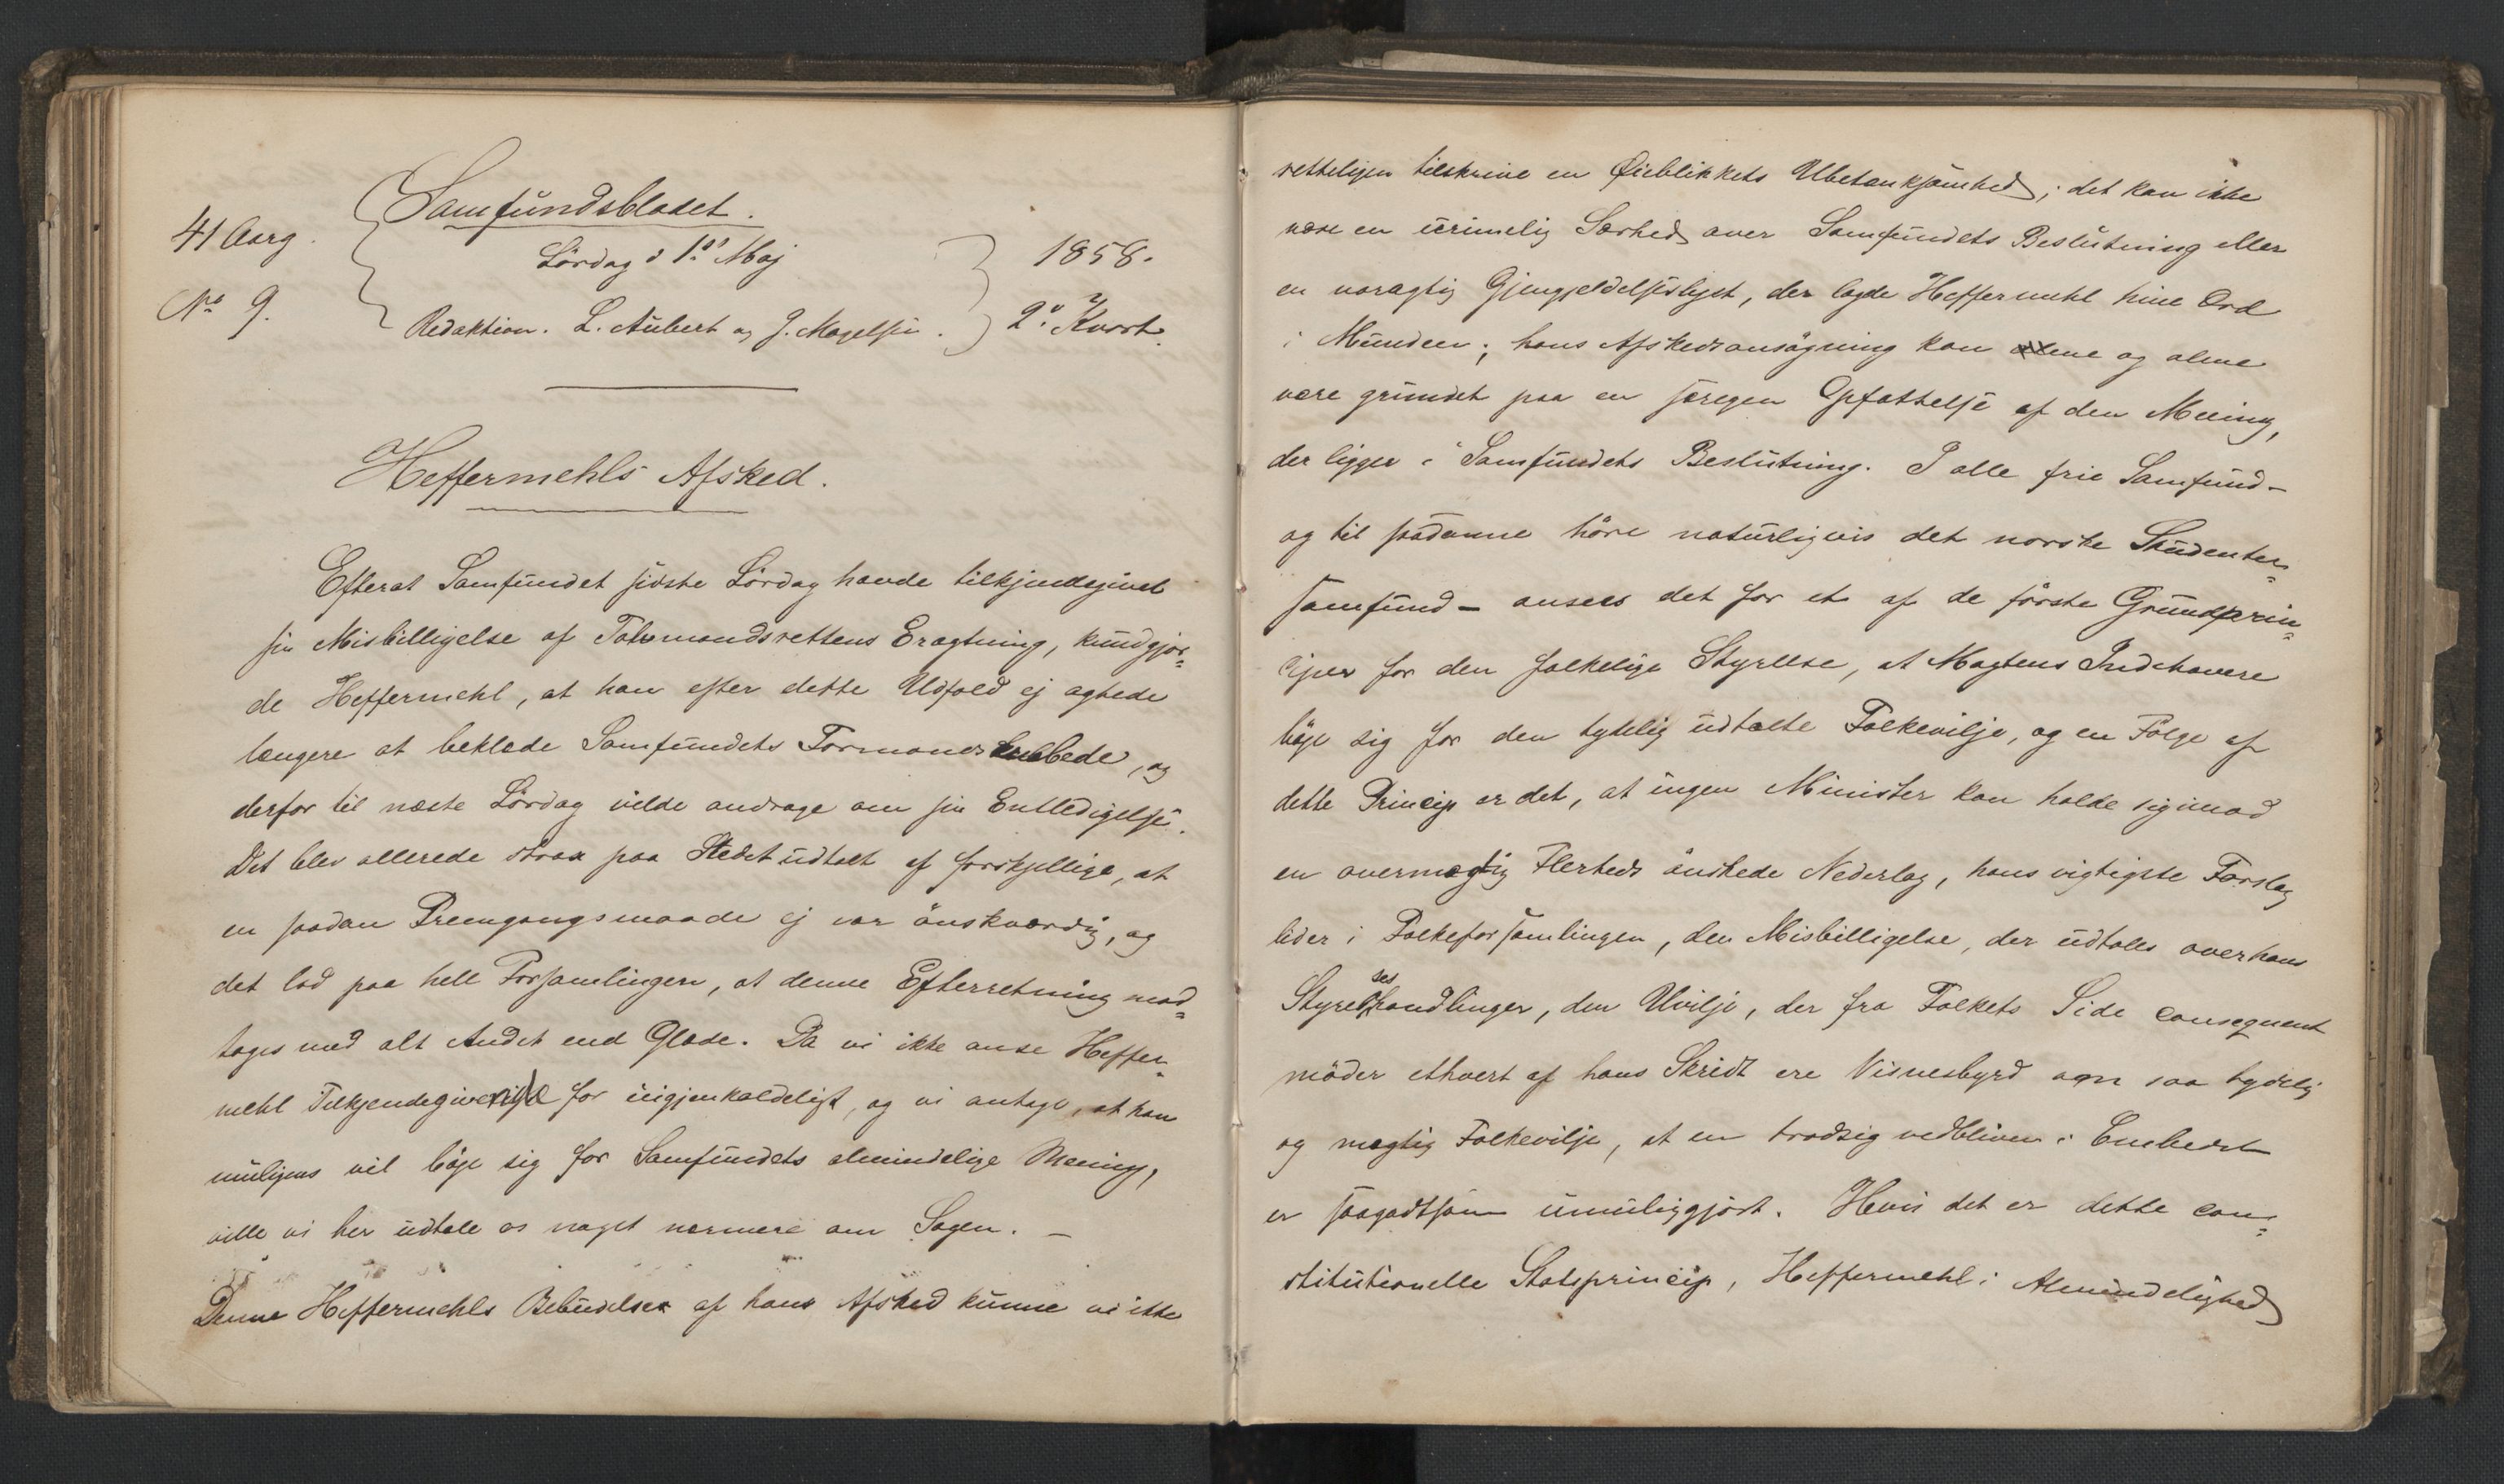 Samfundsbladet.
41 Aarg.
Lördag d 1ste Maj
1858.
No 9.
Redaktion. L. Aubert og J. Mogelsen.
2det Kvart.
Heffermehls Afsked.
Efterat Samfundet sidste Lördag havde tilkjendegivet
sin Misbilligelse af Talsmandsrettens Eragtning, kundgjor=
de Heffermehl, at han efter dette Udfald ej agtede
længere at beklæde Samfundets Formandsembede, og
derfor til næste Lördag vilde andrage om sin Entledigelse.
Det blev allerede strax paa Stedet udtalt af forskjellige, at
en saadan Fremgangsmaade ej var önskværdig, og
det lod paa hele Forsamlingen, at denne Efterretning mod=
toges med alt Andet end Glæde. Da vi ikke anse Heffer=
mehl Tilkjendegivelse for uigjenkaldeligt, og vi antage, at han
muligens vil böje sig for Samfundets almindelige Mening,
ville vi her udtale os noget nærmere om Sagen. –
Denne Heffermehls Bebudelse af hans Afsked kunne vi ikke
retteligen tilskrive en Øieblikkets Ubetænksomhed; det kan ikke
være en urimelig Særhed over Samfundets Beslutning eller
en uvægtig Gjengjeldelseslyst, der lagde Heffermehl hine Ord
i Munden; hans Afskedsansögning kan ene og alene
være grundet paa en særegen Opfattelse af den Mening,
der ligger i Samfundets Beslutning. I alle frie Samfund –
og til saadanne höre naturligvis det norske Studenter=
samfund – ansees det for et af de förste Grundprin=
ciper for den folkelige Styrelse, at Magtens Indehavere
böje sig for den tydelig udtalte Folkevilje, og en Fölge af
dette Princip er det, at ingen Minister kan holde sig imod
en overmægtig Flerheds önskede Nederlag, hans vigtigste Forslag
lider i Folkeforsamlingen, den Misbilligelse, der udtales over hans
Styrelseshandlinger, den Uvilje, der fra Folkets Side consequent
möder ethvert af hans Skridt ere Vidnesbyrd om saa tydelig
og mægtig Folkevilje, at en trodsig vedbliven i Embedet
er saagodtsom umuliggjort. Hvis det er dette con=
stitutionelle Statsprincip, Heffermehl i Almindelighed